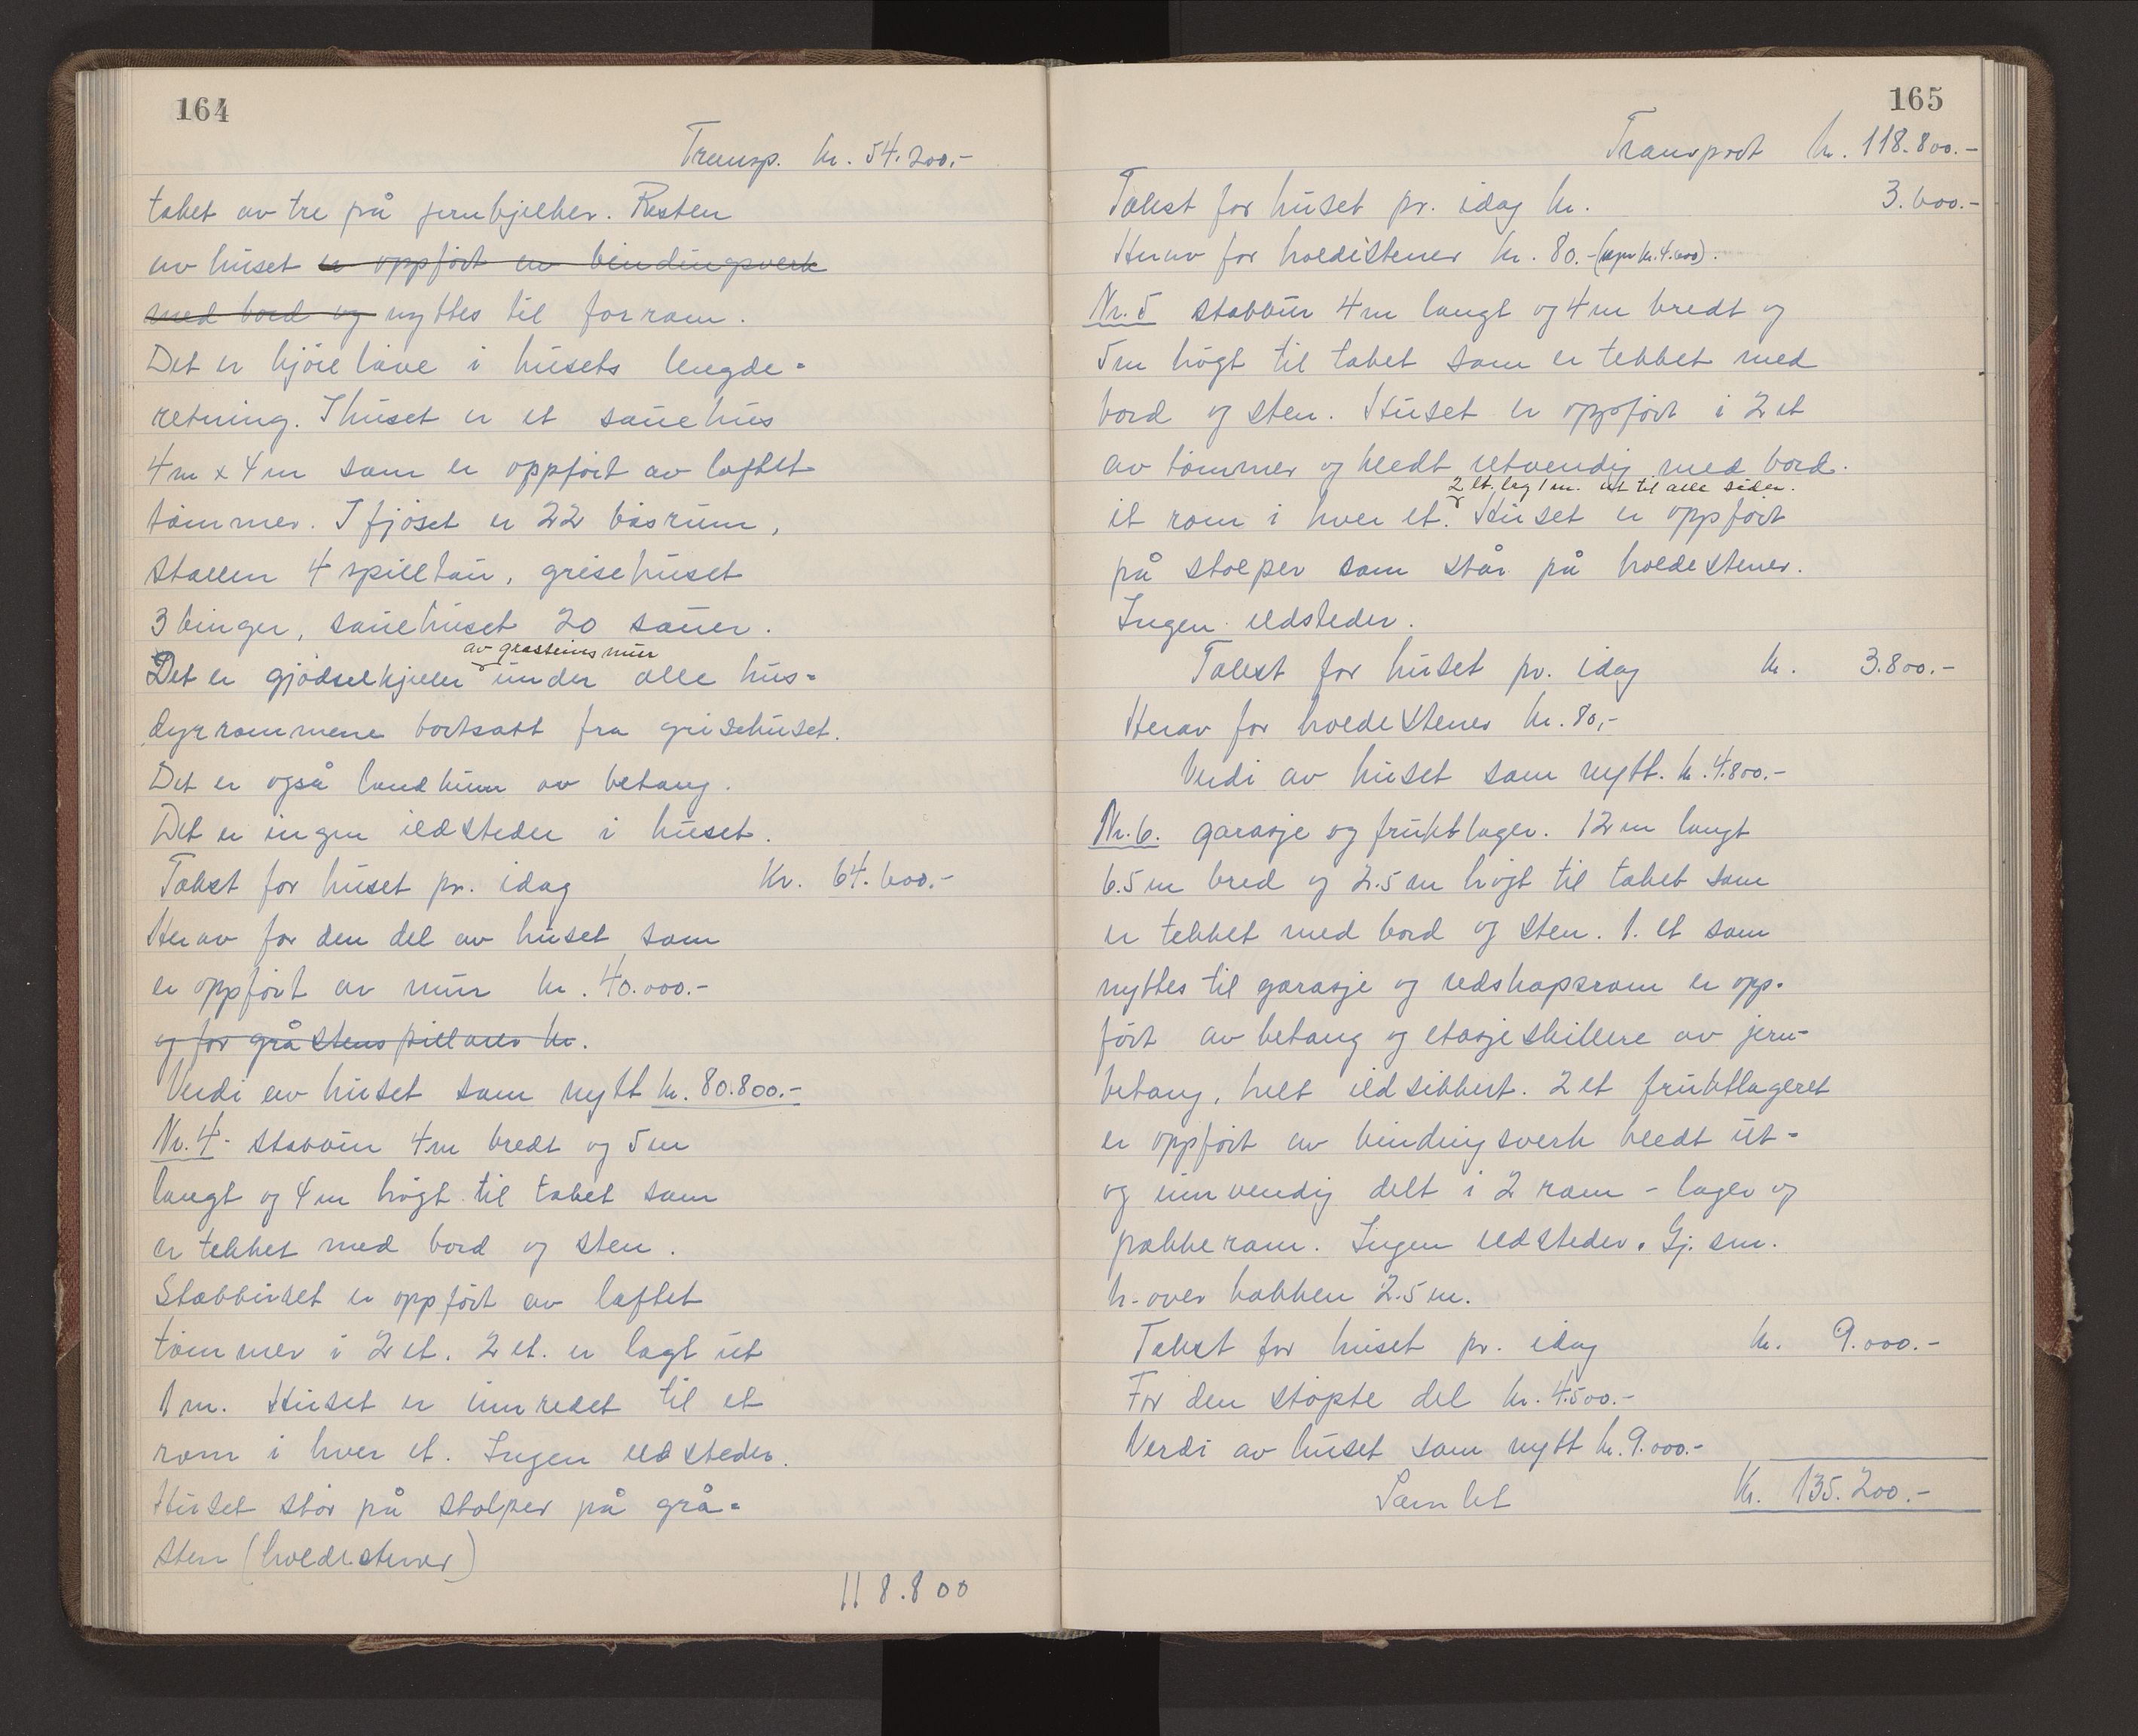 164
Transp. kr. 54.200.-
taket av tre på jernbjelker. Resten
av huset er oppført av bindingsverk
med bord og nyttes til forrom.
Det er kjørelåve i husets lengde-
retning. I huset er et sauehus
4m x 4m som er oppført av laftet
tømmer. I fjøset er 22 båsrum,
stallen 4 spilltau, grisehuset
3 binger, sauehuset 20 sauer.
av gråsteinsmur
Det er gjødselkjeller under alle hus-
dyrrommene bortsatt fra grisehuset.
Det er også landkum av betong.
Det er ingen ildsteder i huset.
Takst for huset pr. idag Kr. 64.600.-
Herav for den del av huset som
er oppført av mur kr. 40.000.-
og for gråstens pillarer kr.
Verdi av huset som nytt kr. 80.800.-
Nr. 4- stabbur 4m bredt og 5m
langt og 4m høgt til taket som
er tekket med bord og sten.
Stabburet er oppført av laftet
tømmer i 2 et. 2 et. er lagt ut
1 m. Huset er innredet til et
rom i hver et. Ingen ildsteder.
Huset står på stolper på grå-
sten (holdestener)
118.800
165
Transport kr. 118.800.-
Takst for huset pr. idag kr. 3.600.-
Herav for holdistener kr. 80.- (nypr kr. 4.600).
Nr. 5 stabbur 4m langt og 4m bredt og
5m høgt til taket som er tekket med
bord og sten. Huset er oppført i 2 et
av tømmer og kledt utvendig med bord.
2 et. lagt 1 m. ut til alle sider.
et rom i hver et. Huset er oppført
på stolper som står på holdestener.
Ingen ildsteder.
Takst for huset pr. idag kr. 3.800.-
Herav for holdestener kr. 80,-
Verdi av huset som nytt. kr. 4.800.-
Nr. 6. garasje og fruktlager. 12m langt
6.5m bred og 2.5m høgt til taket som
er tekket med bord og sten. 1. et som
nyttes til garasje og redskapsrom er opp-
ført av betong og etasjeskillere av jern-
betong, helt ildsikkert. 2 et fruktlageret
er oppført av bindingsverk kledt ut-
og innvendig delt i 2 rom - lager og
pakkerom. Ingen ildsteder. Gj. sm.
h. over bakken 2.5 m.
Takst for huset pr. idag kr. 9.000.-
For den støpte del kr. 4.500.-
Verdi av huset som nytt kr. 9.000.-
Samlet Kr. 135.200.-